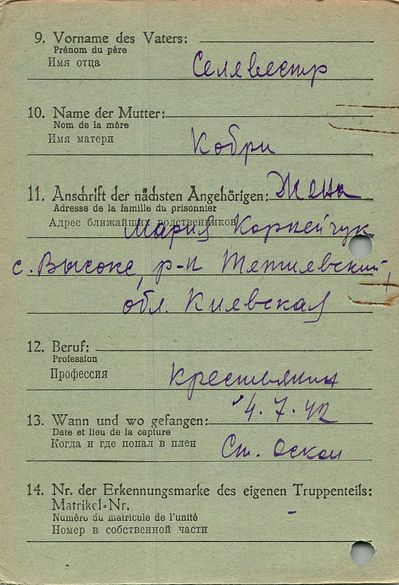 9. Vorname des Vaters:
Prénom du père
Имя отца
Селевестр
10. Name der Mutter:
Nom de la mère
Имя матери
Кобри
11. Anschrift der nächsten Angehörigen: Жена
Adresse de la famille du prisonnier
Адрес ближайших родственников
Мария Корнейчук
с. Высоке, р-н Тетиевский,
обл. Киевская
12. Beruf:
Profession
Профессия
крестьянин
13. Wann und wo gefangen: 4.7.42
Date et lieu de la capture
Когда и где попал в плен
Ст. Оскол
14. Nr. der Erkennungsmarke des eigenen Truppenteils:
Matrikel-Nr.
Numéro du matricule de l'unité
Номер в собственной части
-